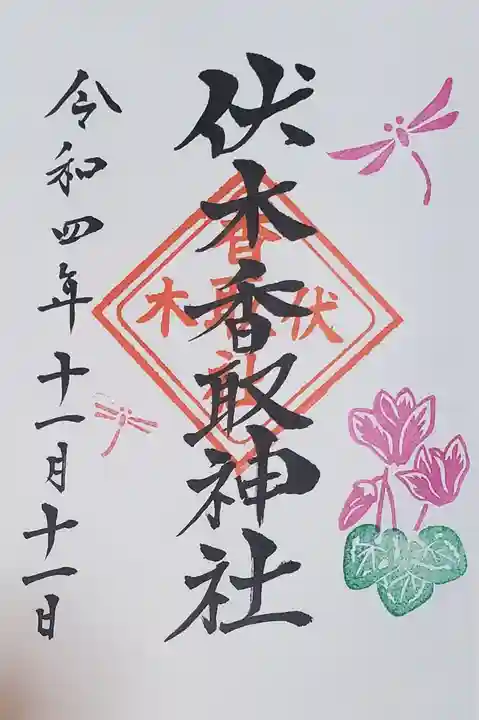 伏木香取神社
令和四年十一月十一日
伏木